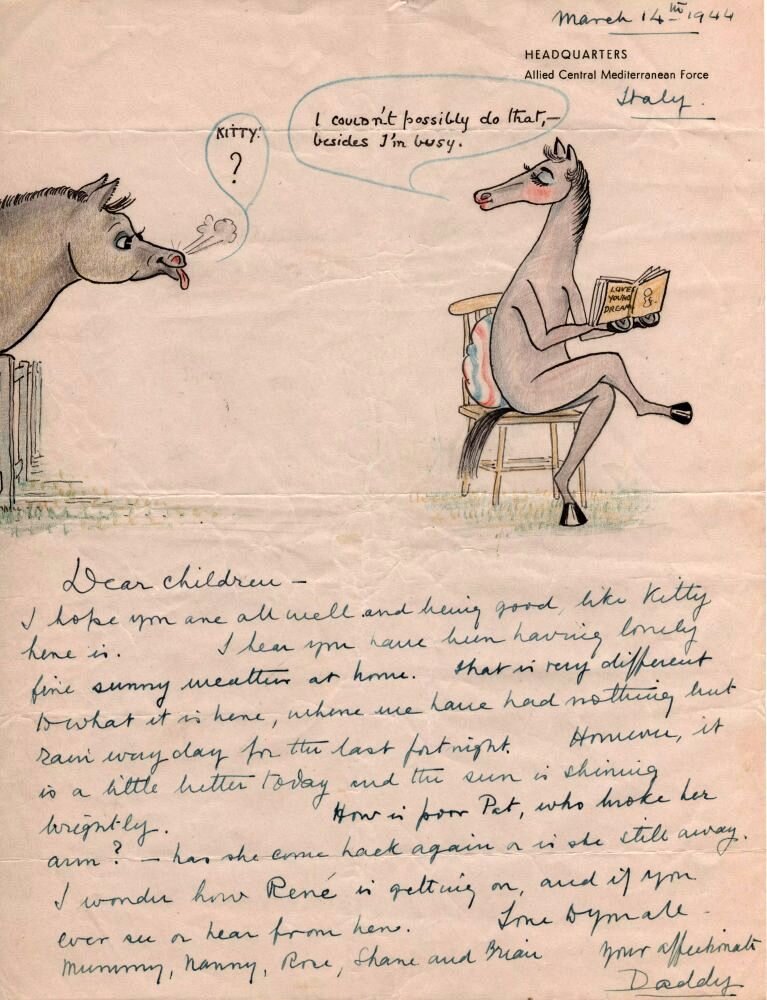 March 14th 1944
HEADQUARTERS
Allied Central Mediterranean Force
Italy.
KITTY!
?
I couldn't possibly do that,—
besides I'm busy.
LOVE'S
YOUNG
DREAM
Dear children —
I hope you are all well and being good, like Kitty
here is. I hear you have been having lovely
fine sunny weather at home. That is very different
to what it is here, where we have had nothing but
rain every day for the last fortnight. However, it
is a little better today and the sun is shining
brightly. How is poor Pat, who broke her
arm? — has she come back again or is she still away.
I wonder how René is getting on, and if you
ever see or hear from her. Love
Mummy, Nanny, Rose, Shane and Brian your affectionate
Daddy